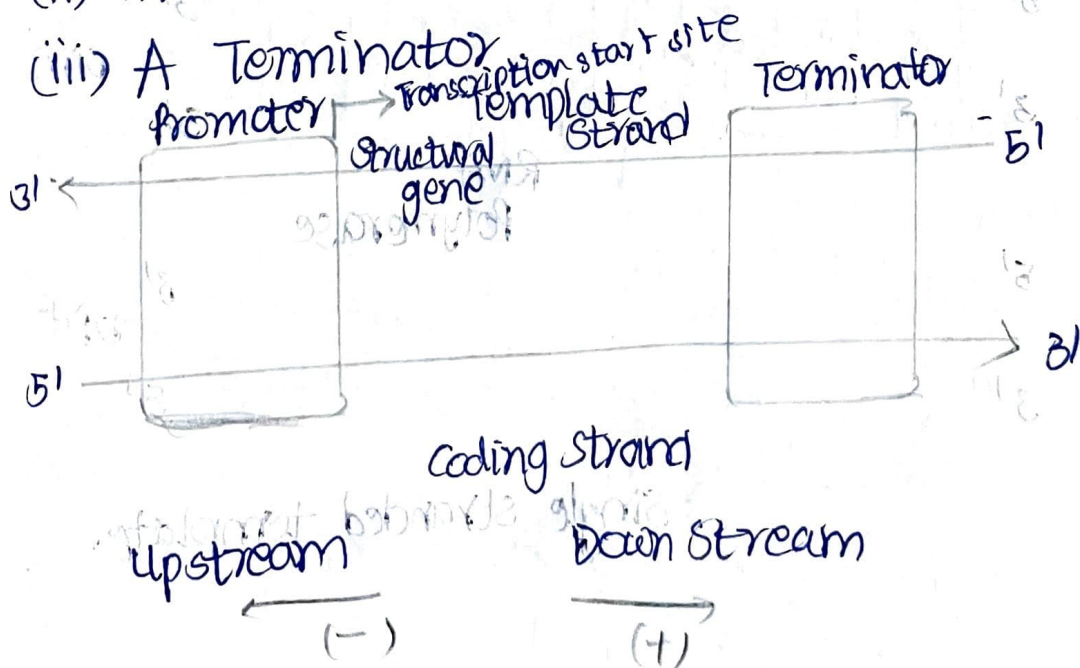 (iii) A Terminator
Transcription start site
Promoter
Template
Strand
Terminator
Structural
gene
3'
5'
5'
3'
Coding Strand
Upstream
Down Stream
(-)
(+)